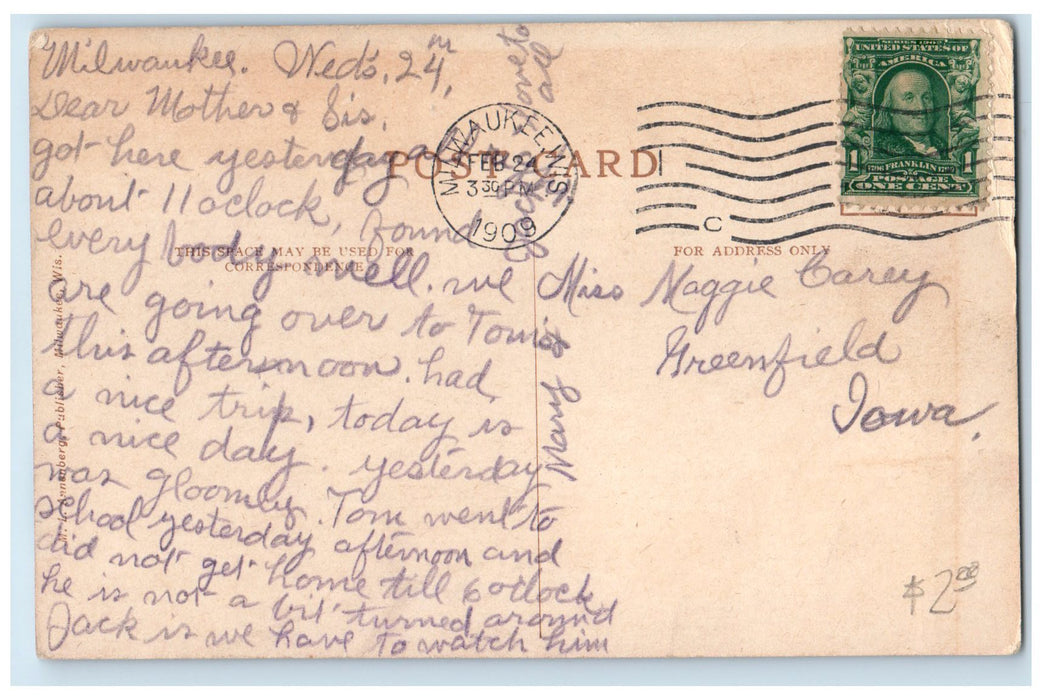 Milwaukee. Wed's, 24th,
Dear Mother & Sis,
got here yesterday a
about 11 oclock, found
every body well. we
are going over to Tom's
this afternoon. had
a nice trip, today is
a nice day. yesterday
was gloomey. Tom went to
school yesterday afternoon and
did not get home till 6 oclock
he is not a bit turned around
Jack is we have to watch him
love to
all
Mary &
Jack
POST CARD
THIS SPACE MAY BE USED FOR
CORRESPONDENCE
FOR ADDRESS ONLY
Annenberg, Publisher, Milwaukee, Wis.
MILWAUKEE, WIS.
FEB 24
3 30 P.M.
1909
C
SERIES 1902
UNITED STATES OF
AMERICA
1
FRANKLIN
1
POSTAGE
ONE CENT
Miss Maggie Carey
Greenfield
Iowa.
$2.00